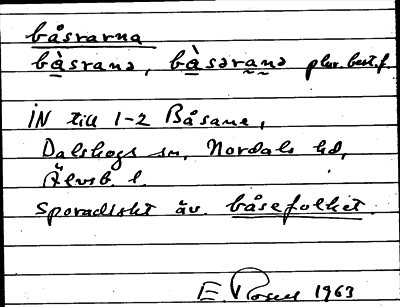 båsrarna
bàsranə, bàsəranə plur. best. f.
IN till 1-2 Båsane,
Dalskogs sn, Nordals hd,
Älvsb. l.
Sporadiskt äv. båsefolket.
E. 1963